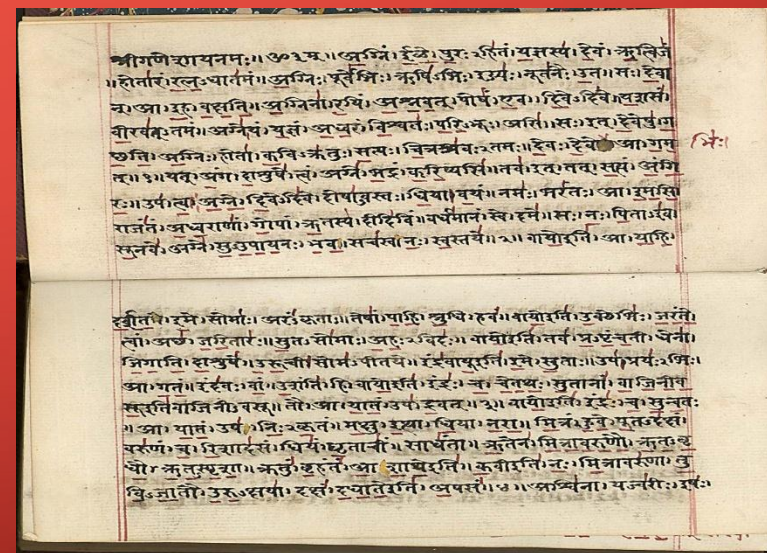 श्रीगणेशायनमः॥ॐ३म्॥अग्निं।ईळे।पुरःऽहितं।यज्ञस्य।देवं।ऋत्विजं
॥होतारं।रत्नऽधातमं॥अग्निः।पूर्वेभिः।ऋषिऽभिः।ईड्यः।नूतनैः।उत॥सः।देवा
न्।आ।इह।वक्षति॥अग्निना।रयिं।अश्नवत्।पोषं।एव।दिवेऽदिवे॥यशसं
वीरवत्ऽतमं॥अग्ने।यं।यज्ञं।अध्वरं।विश्वतः।परिऽभूः।असि॥सः।इत्।देवेषु।ग
च्छति॥अग्निः।होता।कविऽक्रतुः।सत्यः।चित्रश्रवःऽतमः॥देवः।देवे आ।गम
भिः।
त्॥१॥यत्।अंग।दाशुषे।त्वं।अग्ने।भद्रं।करिष्यसि॥तव।इत्।तत्।सत्यं।अंगि
रः॥उप।त्वा।अग्ने।दिवेऽदिवे।दोषाऽवस्तः।धिया।वयं॥नमः।भरंतः।आ।इमसि॥
राजंतं।अध्वराणां।गोपां।ऋतस्य।दीदिविं॥वर्धमानं।स्वे।दमे॥सः।नः।पिताऽइव
सूनवे।अग्ने।सुऽउपायनः।भव॥सचस्व।नः।स्वस्तये॥२॥वायोइति।आ।याहि।
दर्शत।इमे।सोमाः।अरंऽकृताः॥तेषां।पाहि।श्रुधि।हवं॥वायोइति।उक्थेभिः।जरंते।
त्वां।अच्छ।जरितारः॥सुतऽसोमाः।अहःऽविदः॥वायोइति।तव।प्रऽपृंचती।धेना।
जिगाति।दाशुषे॥उरूची।सोमऽपीतये॥इंद्रवायूइति।इमे।सुताः॥उप।प्रयःऽभिः।
आ।गतं॥इंदवः।वां।उशंति।हि॥वायोइति।इंद्रः।च।चेतथः।सुतानां।वाजिनीव
सूइतिवाजिनीऽवसू॥तौ।आ।यातं।उप।द्रवत्॥३॥वायोइति।इंद्रः।च।सुन्वतः
॥आ।यातं।उप।निःऽकृतं॥मक्षु।इत्था।धिया।नरा॥मित्रं।हुवे।पूतऽदक्षं।
वरुणं।च।रिशादसं॥धियं।घृताचीं।साधंता॥ऋतेन।मित्रावरुणौ।ऋतऽवृ
धौ।ऋतऽस्पृशा॥क्रतुं।बृहंतं।आशाथेइति॥कवीइति।नः।मित्रावरुणा।तु
विऽजातौ।उरुऽक्षया॥दक्षं।दधातेइति।अपसं॥४॥अश्विना।यज्वरीः।इषः।